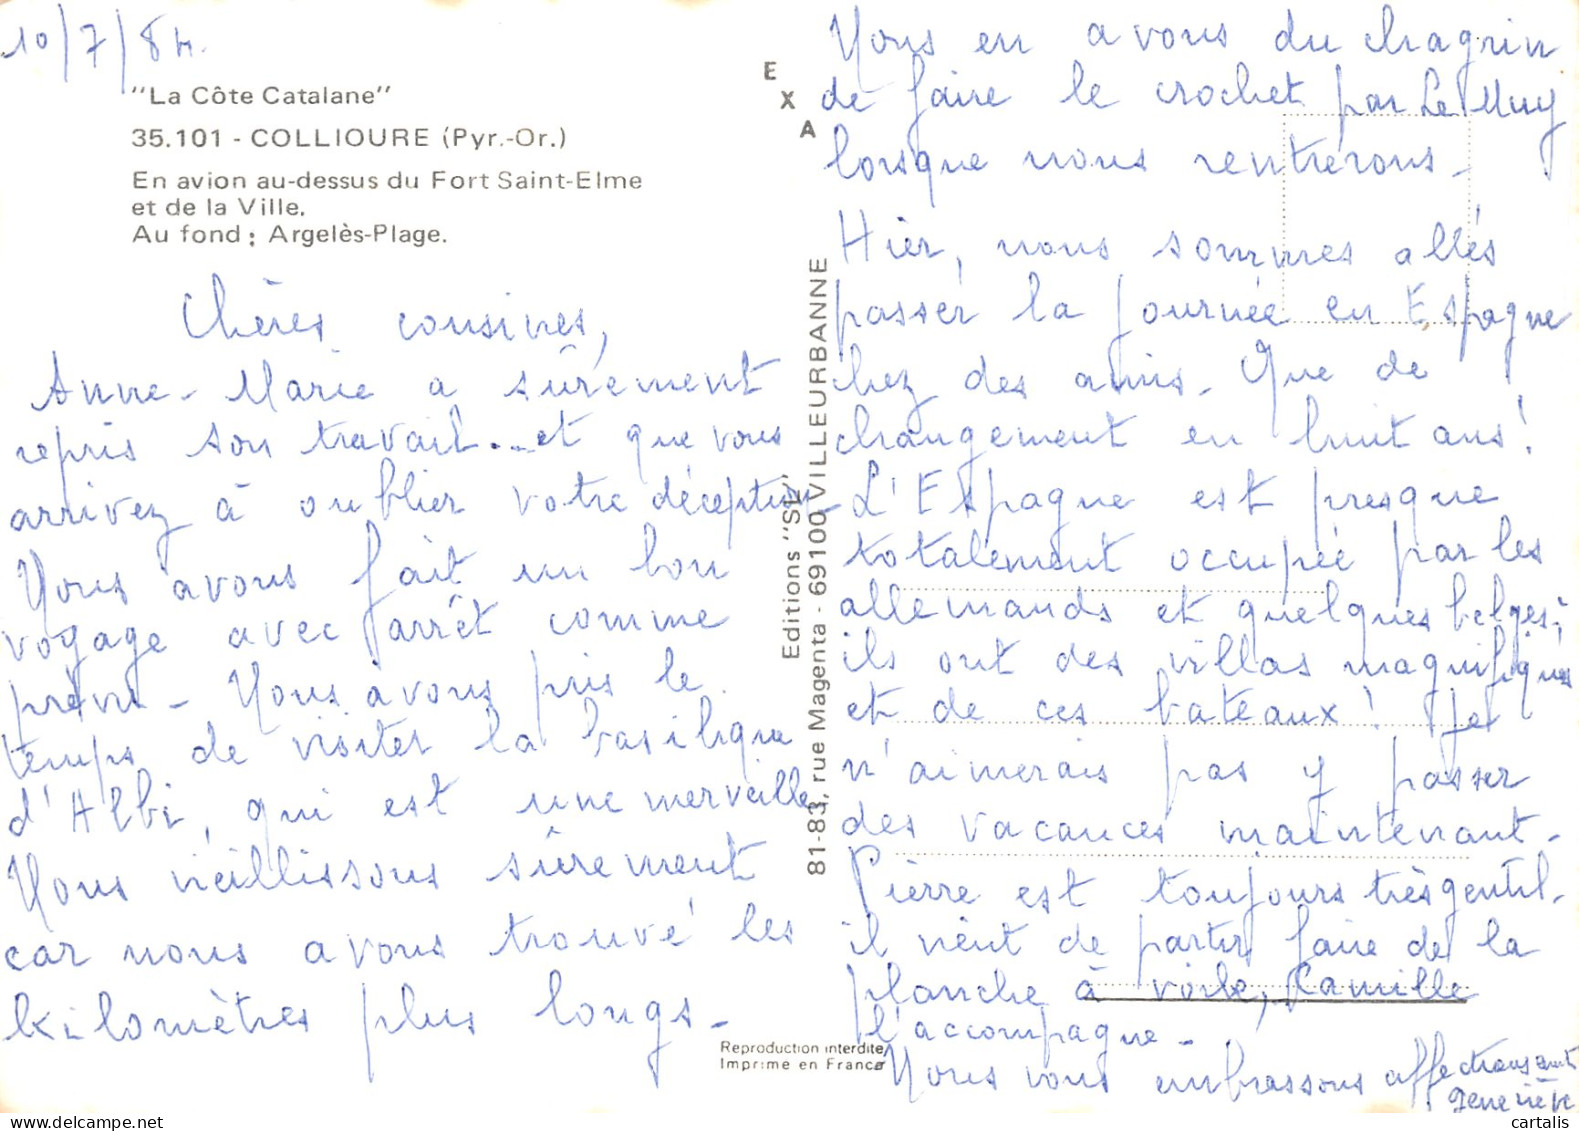 10/7/84.
"La Côte Catalane"
35.101 - COLLIOURE (Pyr.-Or.)
En avion au-dessus du Fort Saint-Elme
et de la Ville.
Au fond : Argelès-Plage.
Chères cousines,
Anne-Marie a sûrement
repris son travail... et que vous
arrivez à oublier votre déception.
Nous avons fait un bon
voyage avec arrêt comme
prévu - Nous avons pris le
temps de visiter la basilique
d'Albi, qui est une merveille
Nous vieillissons sûrement
car nous avons trouvé les
kilomètres plus longs -
EXA
Editions "SL"
81-83, rue Magenta - 69100 VILLEURBANNE
Reproduction interdite
Imprimé en France
Nous en avons du chagrin
de faire le crochet par Le Muy
lorsque nous rentrerons -
Hier, nous sommes allés
passer la journée en Espagne
chez des amis - Que de
changement en huit ans !
L'Espagne est presque
totalement occupée par les
allemands et quelques belges ;
ils ont des villas magnifiques
et de ces bateaux ! Je
n'aimerais pas y passer
des vacances maintenant -
Pierre est toujours très gentil -
il vient de partir faire de la
planche à voile, Camille
l'accompagne -
Nous vous embrassons affectueusement
Geneviève
cartalis